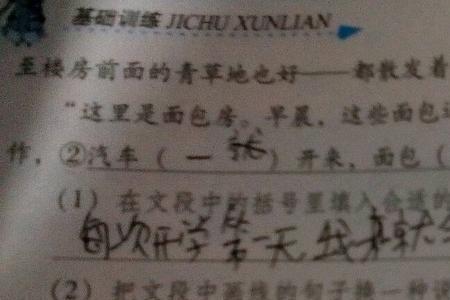 基础训练 JICHU XUNLIAN
至楼房前面的青草地也好——都散发着
“这里是面包房。早晨,这些面包
作,②汽车(一就)开来,面包(
(1)在文段中的括号里填入合适的
每次开学第一天,我来就
(2)把文段中画线的句子换一种说